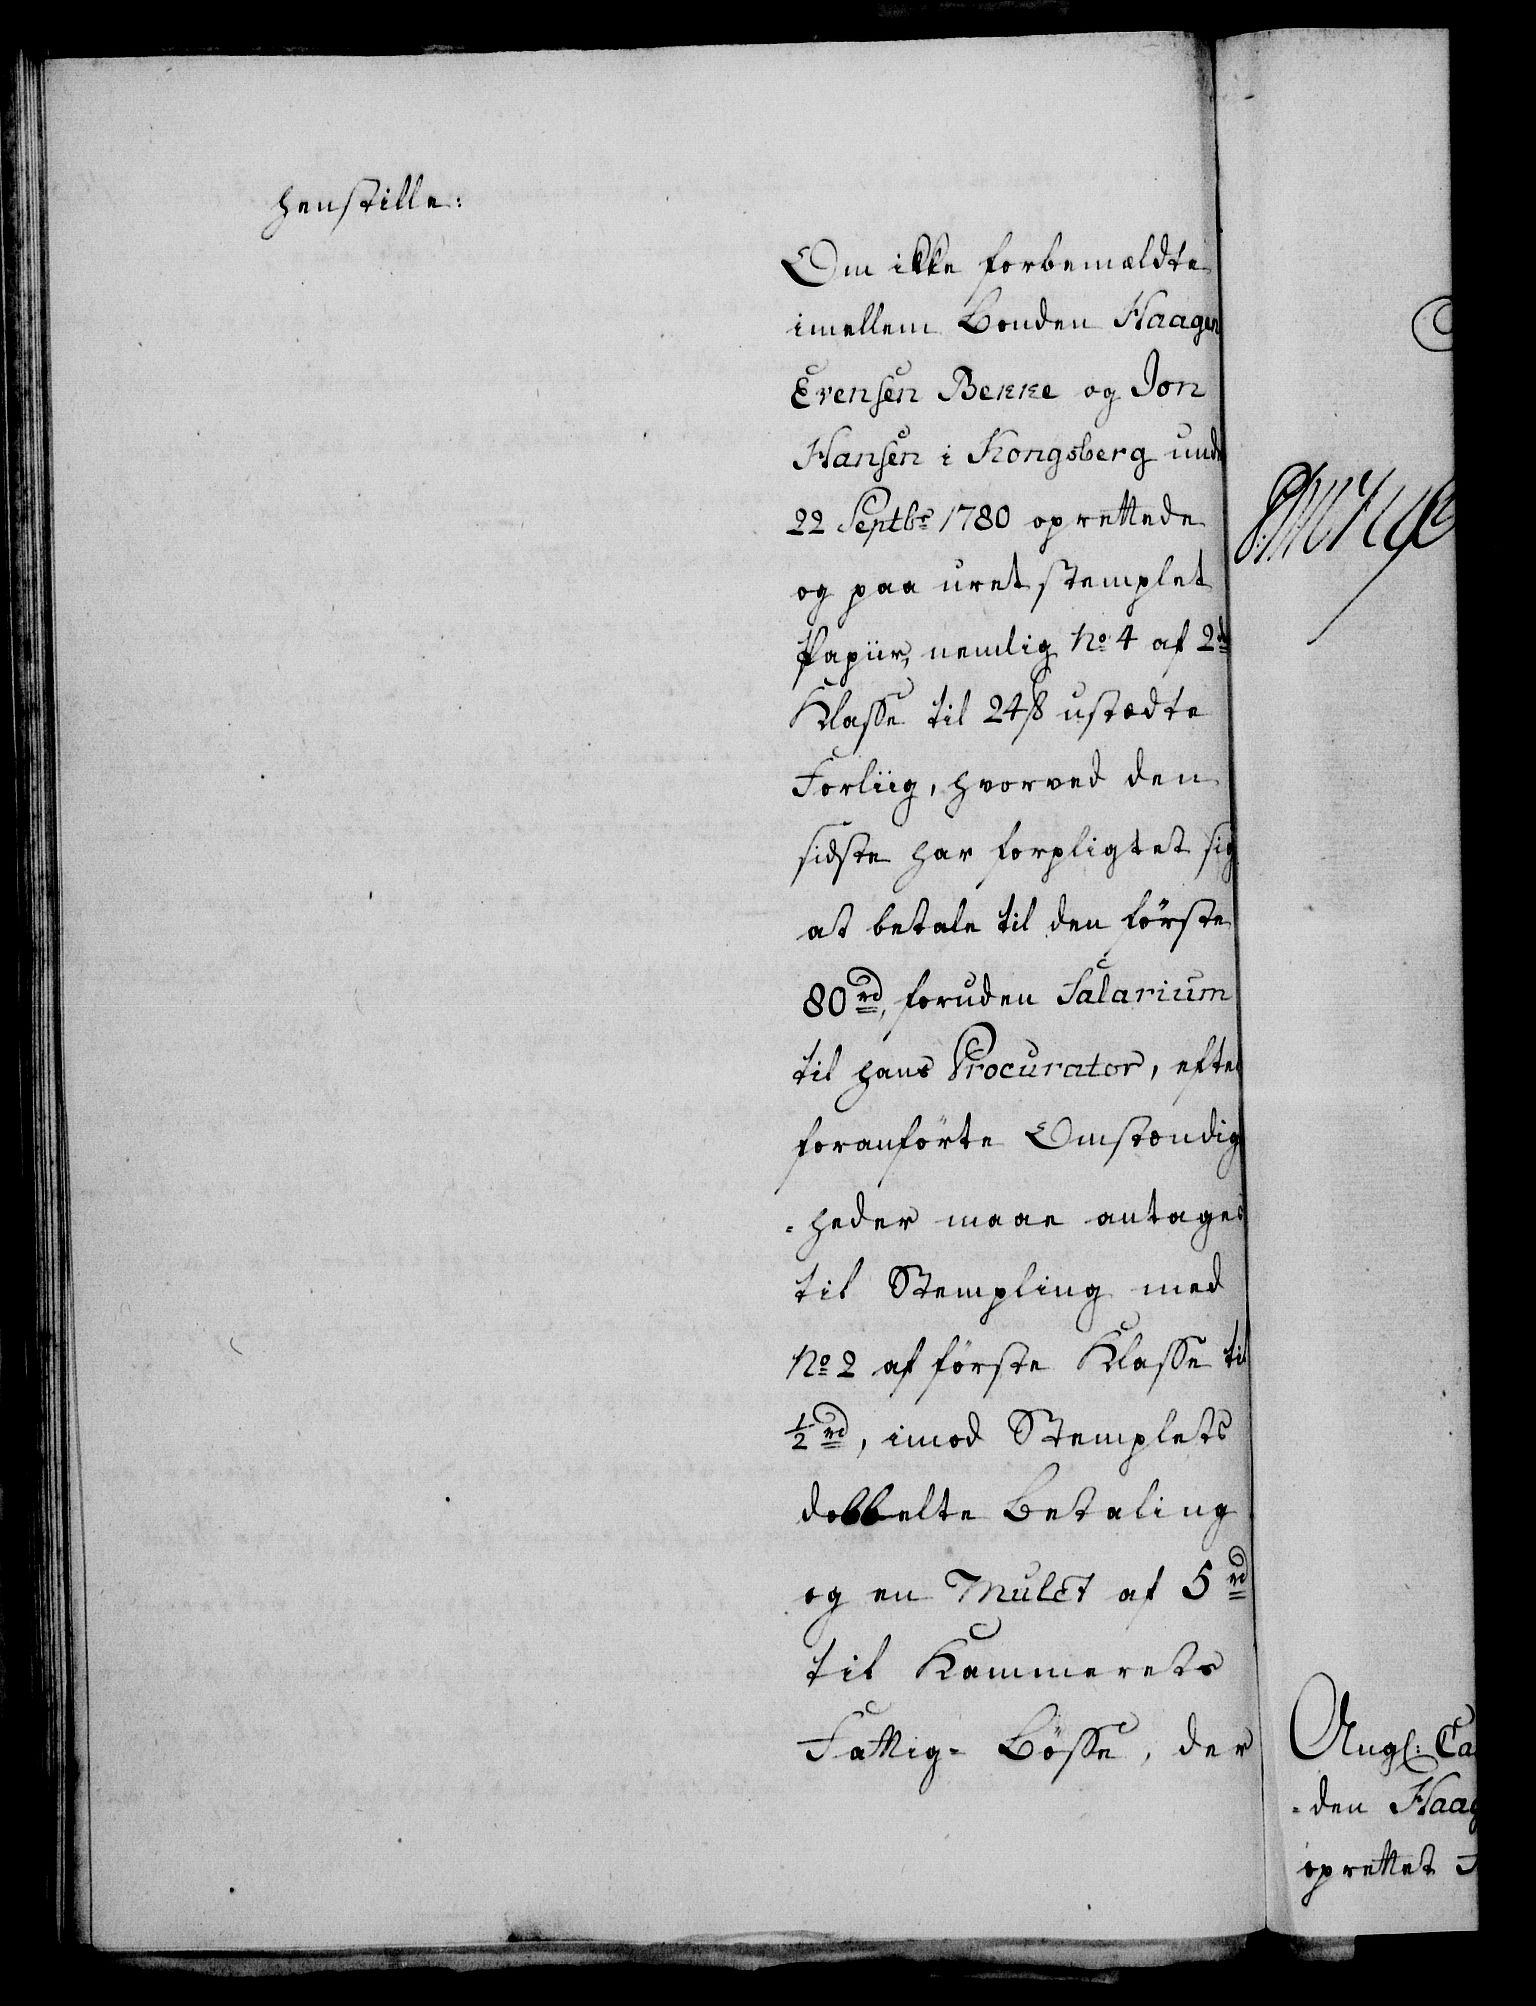 henstille:
Om ikke forbemældte
imellem Bonden Haagen
Evensen Bekke og Jon
Hansen i Kongsberg und
22 Septbr 1780 oprettede
og paa uret stemplet
Papiir, nemlig No 4 af 2de
Klasse til 24 ß ustædte
Forliig, hvorved den
sidste har forpligtet sig
at betale til den förste
80 rd, foruden Salarium
til hans Procurator, efter
foranförte Omstændig
-heder maae antages
til Stempling med
No 2 af förste Klasse til
1/2 rd, imod Stemplets
dobbelte Betaling
og en Mulct af 5 rd
til Kammerets
Fattig- Bösse, der
Angl: Ca
-den Haag
oprettet F